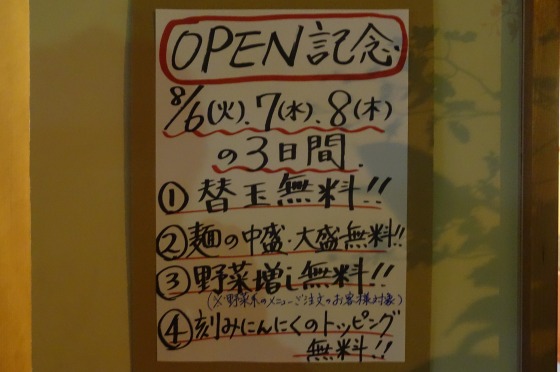 OPEN記念
8/6(火).7(水).8(木)
の3日間.
①替玉無料!!
②麺の中盛・大盛無料!!
③野菜増し無料!!
(※野菜系のメニューご注文のお客様対象)
④刻みにんにくのトッピング
無料!!